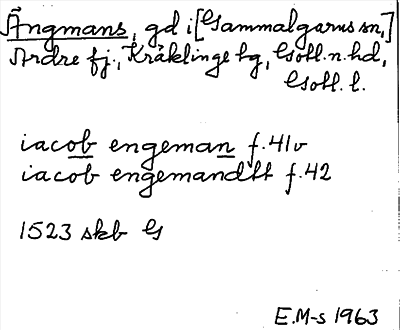 Ängmans, gd i [Gammalgarns sn,]
Ardre fj., Kräklinge tg, Gotl. n. hd,
Gotl. l.
iacob engeman f. 41v
iacob engemandtt f. 42
1523 skb G
E.M-s 1963